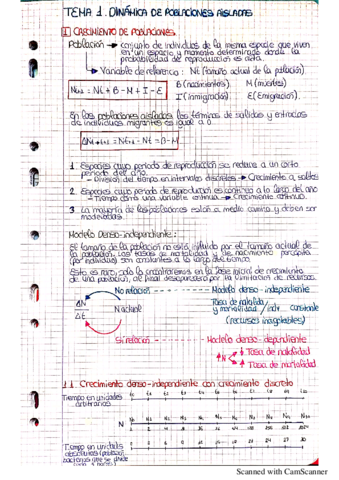 TEMA 1. DINÁMICA DE POBLACIONES AISLADAS
1 CRECIMIENTO DE POBLACIONES
Población → conjunto de individuos de la misma especie que viven
en un espacio y momento determinado donde la
probabilidad de reproducción es alta.
↳ Variable de referencia: Nt (tamaño actual de la población).
Nt+1 = Nt + B - M + I - E
B (nacimientos). M (muertes)
I (inmigración) E (Emigración).
En las poblaciones aisladas los términos de salidas y entradas
de individuos migrantes es igual a 0.
ΔNt+1 = Nt+1 - Nt = B-M
1 Especies cuyo periodo de reproducción se reduce a un corto
periodo del año.
– División del tiempo en intervalos discretos → Crecimiento a saltos
2 Especies cuyo periodo de reproducción es continuo a lo largo del año
– Tiempo como una variable continua → Crecimiento continuo.
3 La mayoría de las poblaciones están a medio camino y deben ser
modelizadas.
Modelo Denso-independiente:
El tamaño de la población no está influido por el tamaño actual de
la población. Las tasas de mortalidad y de nacimiento per cápita
(por individuo) son constantes a lo largo del tiempo.
Esto es raro, sólo lo encontraremos en la fase inicial de crecimiento
de una población, al final desaparecerá por la limitación de recursos.
No relación - - - → Modelo denso-independiente
ΔN
Δt
N actual
Tasa de natalidad
y mortalidad / indv. constante
(recursos inagotables)
Si relación - - - → Modelo denso-dependiente
↑N
↓ Tasa de natalidad
↑ Tasa de mortalidad
1.1. Crecimiento denso-independiente con crecimiento discreto
Tiempo en unidades
arbitrarias
N
Tiempo en unidades
absolutas
Scanned with CamScanner